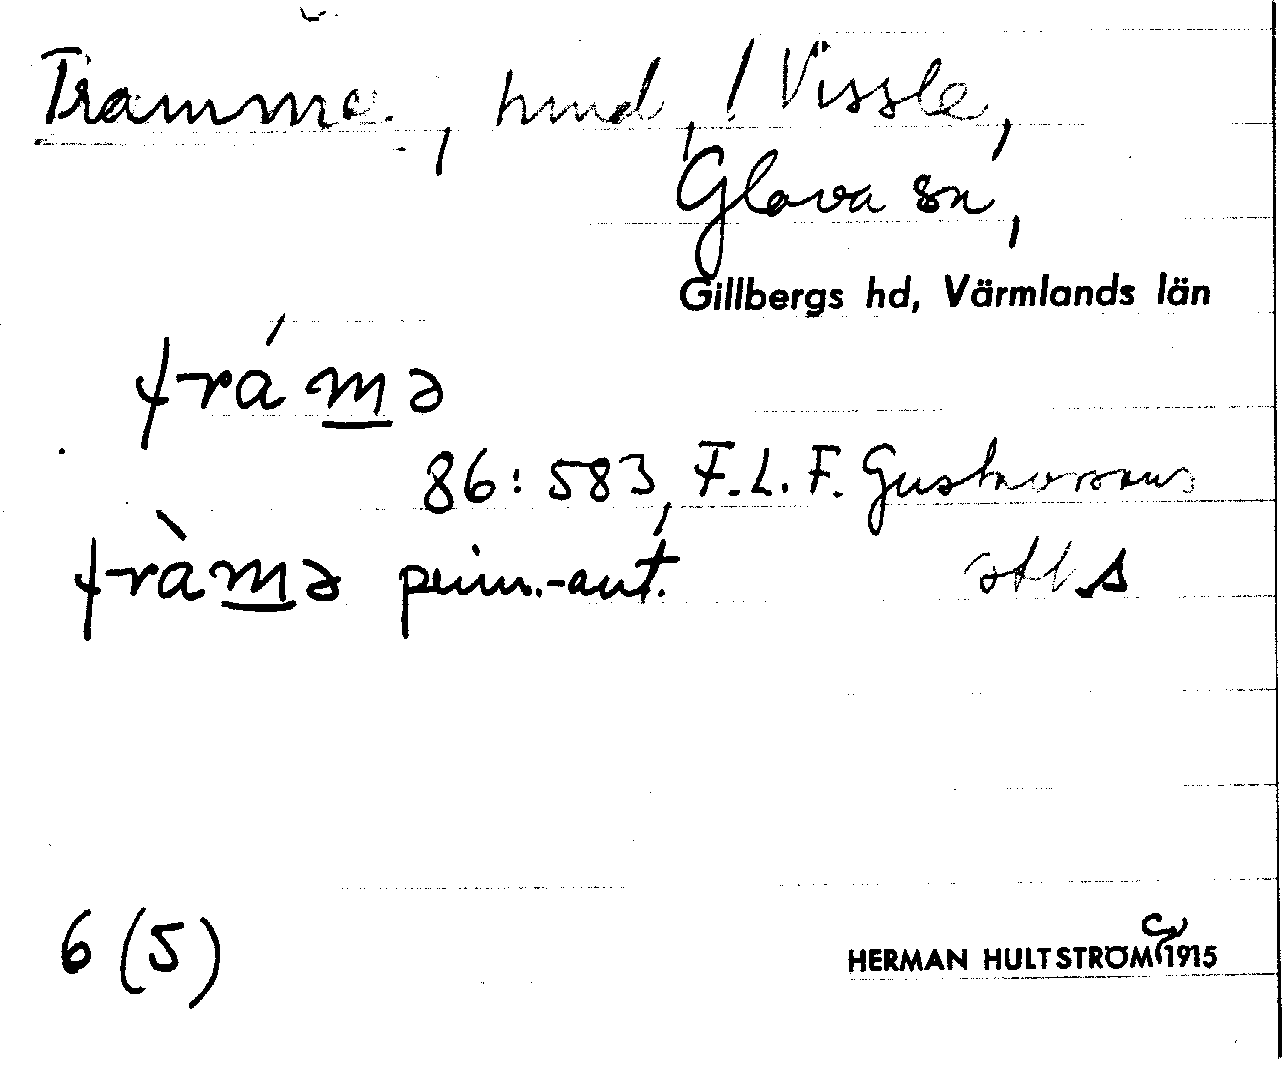 Tramma, hmd, ! Vissle,
Glava sn,
Gillbergs hd, Värmlands län
trámə
86:583, F.L.F. Gustavsson
tràmə prim.-ant.
6 (5)
HERMAN HULTSTRÖM 1915